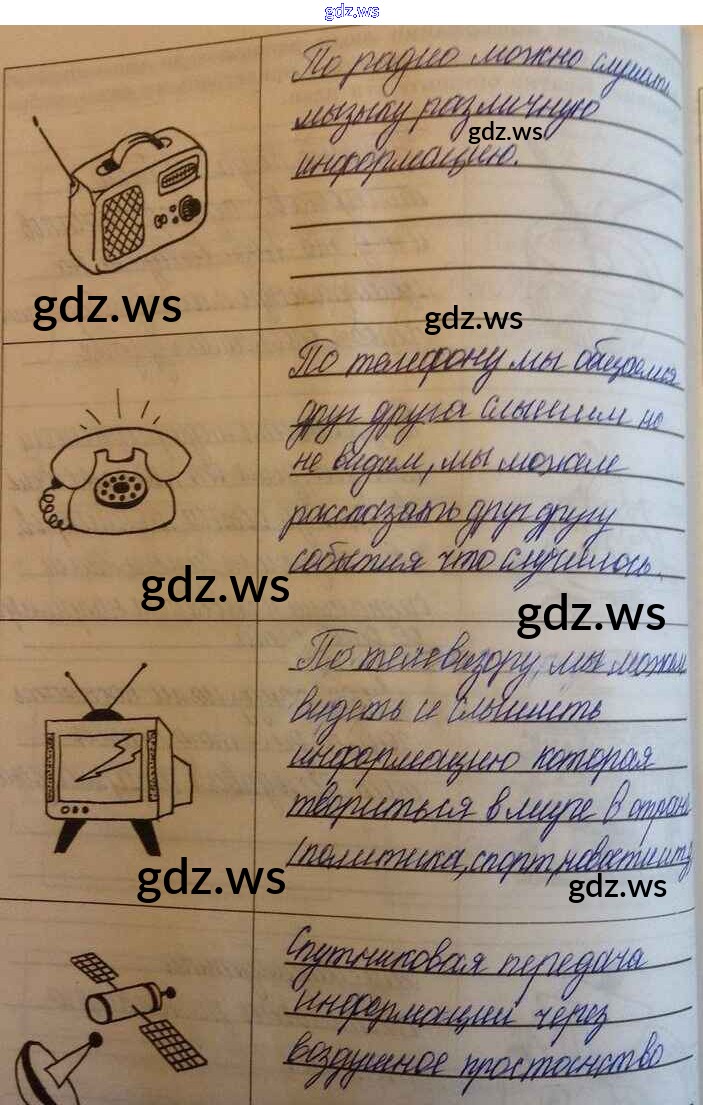 gdz.ws
По радио можно слушать
мызыку различную
gdz.ws
информацию.
gdz.ws
gdz.ws
По телефону мы общаемся
друг друга слышим но
не видим, мы можем
рассказать друг другу
события что случилось.
gdz.ws
gdz.ws
По телевизору, мы можем
видеть и слышить
информацию которая
твориться в мире в
(политика, спорт,
gdz.ws
gdz.ws
Спутниковая передача
информации через
воздушное